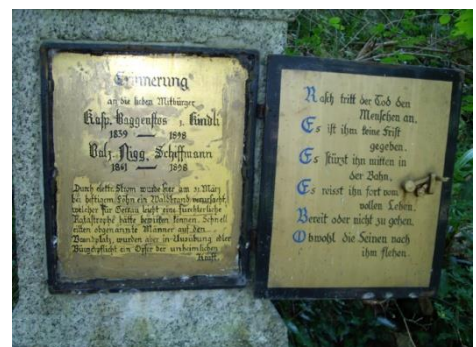 Erinnerung
an die lieben Mitbürger
Kasp. Baggenstos z. Kindli
1839 — 1898
Balz. Nigg, Schiffmann
1841 — 1898
Durch elektr. Strom wurde hier am 21. März
bei heftigem Föhn ein Waldbrand verursacht,
welcher für Gersau leicht eine fürchterliche
Katastrophe hätte bewirken können. Schnell
eilten obgenannte Männer auf den
Brandplatz, wurden aber in Ausübung edler
Bürgerpflicht ein Opfer der unheimlichen
Kraft.
Rasch tritt der Tod den
Menschen an.
Es ist ihm keine Frist
gegeben.
Es stürzt ihn mitten in
der Bahn,
Es reisst ihn fort vom
vollen Leben.
Bereit oder nicht zu gehen.
Obwohl die Seinen nach
ihm flehen.